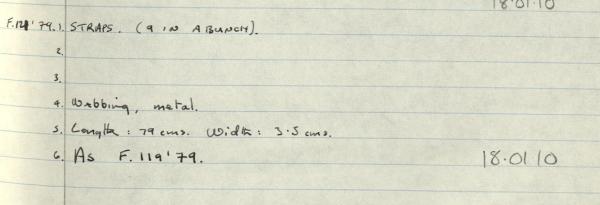 18.01.10
F.121'79.1. STRAPS. (9 IN A BUNCH).
2.
3.
4. Webbing, metal.
5. Length: 79 cms. Width: 3.5 cms.
6. As F.119'79. 18.01 10